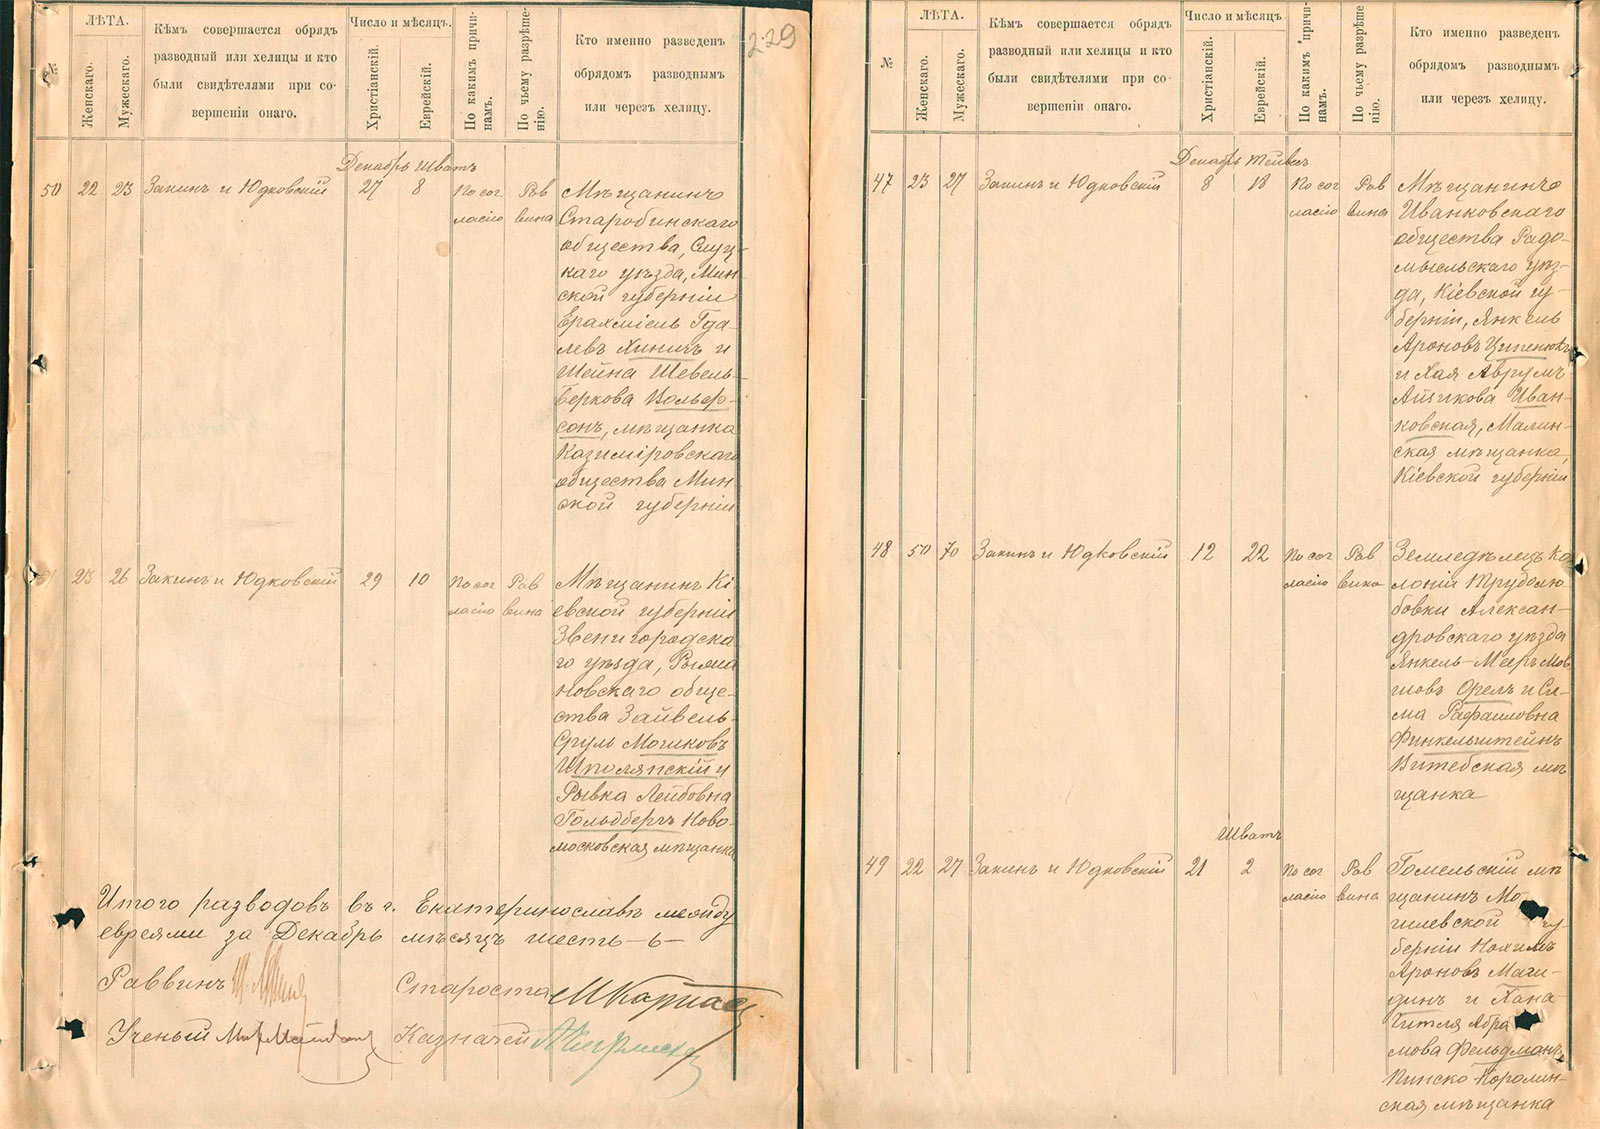 229
№
ЛѢТА.
Женскаго.
Мужескаго.
Кѣмъ совершается обрядъ
разводный или хелицы и кто
были свидѣтелями при со-
вершеніи онаго.
Число и мѣсяцъ.
Христіанскій.
Еврейскій.
По какимъ причи-
намъ.
По чьему разрѣше-
нію.
Кто именно разведенъ
обрядомъ разводнымъ
или черезъ хелицу.
Декабрь Шватъ
50 22 23 Закинъ и Юдковскій 27 8 По сог Рав Мѣщанинъ
ласію вина Старобинскаго
общества, Слуц-
каго уѣзда, Мин-
ской губерніи
Ерахміель Гда-
левъ Хиничъ и
Шейна Шевель-
Беркова Вольф-
сонъ, мѣщанка
Казиміровскаго
общества Мин
ской губерніи
51 23 26 Закинъ и Юдковскій 29 10 По сог Рав Мѣщанинъ Кі
ласію вина евской губерніи
Звенигородска
го уѣзда,
новскаго обще-
ства Зайвель-
Сруль Мошковъ
Шполянскій и
Рывка Лейбовна
Гольдбергъ Ново-
московская мѣщанка
Итого разводовъ въ г. Екатеринославѣ между
евреями за Декабрь мѣсяцъ шесть -6-
Раввинъ
Староста М Карпас
Ученый
Казначей
№
ЛѢТА.
Женскаго.
Мужескаго.
Кѣмъ совершается обрядъ
разводный или хелицы и кто
были свидѣтелями при со-
вершеніи онаго.
Число и мѣсяцъ.
Христіанскій.
Еврейскій.
По какимъ причи-
намъ.
По чьему разрѣше
нію.
Кто именно разведенъ
обрядомъ разводнымъ
или черезъ хелицу.
Декабрь Тейвесъ
47 23 27 Закинъ и Юдковскій 8 18 По сог Рав Мѣщанинъ
ласію вина Иванковскаго
общества Радо-
мысльскаго уѣз-
да, Кіевской гу-
берніи, Янкель
Ароновъ Ципенюкъ
и Хая Аврумъ
Айзикова Иван-
ковская, Малин-
ская мѣщанка,
Кіевской губерніи
48 50 70 Закинъ и Юдковскій 12 22 По сог Рав Земледѣлецъ ко
ласію вина лоніи Трудолю
бовки Алексан-
дровскаго уѣзда
Янкель-Мееръ Мов
шовъ Орелъ и Си-
ма Рафаиловна
Финкельштейнъ
Витебская мѣ
щанка
Шватъ
49 22 27 Закинъ и Юдковскій 21 2 По сог Рав Гомельскій мѣ
ласію вина щанинъ Мо
гилевской гу-
берніи Нохимъ
Ароновъ Маги-
динъ и Хана
Гитля Абра
мова Фельдманъ,
Пинско-Королин-
ская мѣщанка